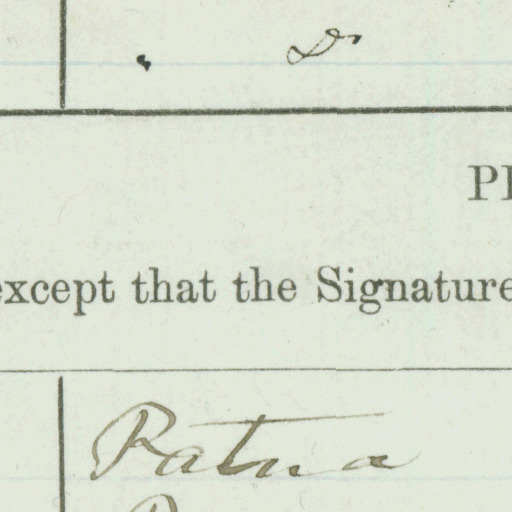 Do
PI
except that the Signature
Ratna